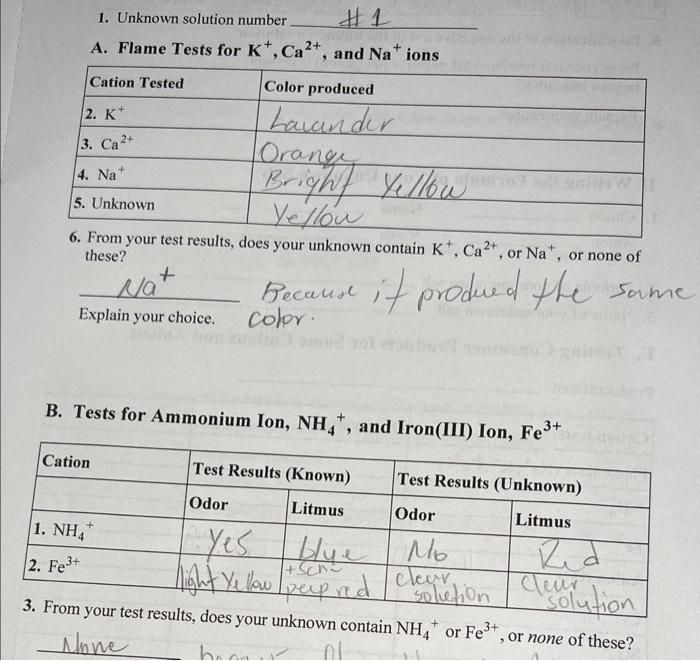 1. Unknown solution number #1
A. Flame Tests for K⁺, Ca²⁺, and Na⁺ ions
Cation Tested Color produced
2. K⁺ Lavander
3. Ca²⁺ Orange
4. Na⁺ Bright Yellow
5. Unknown Yellow
6. From your test results, does your unknown contain K⁺, Ca²⁺, or Na⁺, or none of
these?
Na⁺ Because it produed the same
Explain your choice. color.
B. Tests for Ammonium Ion, NH₄⁺, and Iron(III) Ion, Fe³⁺
Cation Test Results (Known) Test Results (Unknown)
Odor Litmus Odor Litmus
1. NH₄⁺ Yes blue No Red
2. Fe³⁺ light Yellow +SCN⁻ red clear solution Clear solution
3. From your test results, does your unknown contain NH₄⁺ or Fe³⁺, or none of these?
None